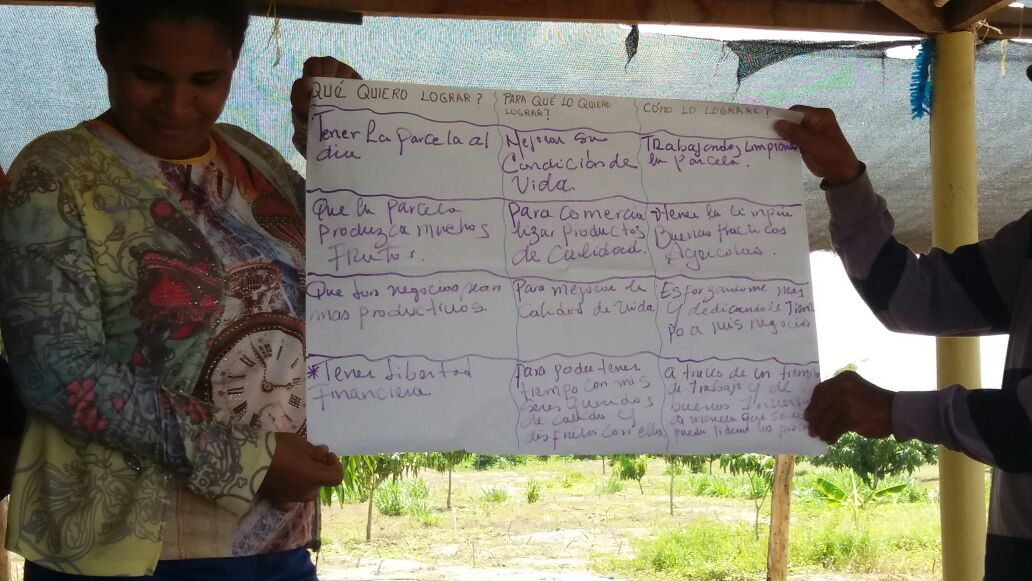 QUÉ QUIERO LOGRAR?
PARA QUÉ LO QUIERO
LOGRAR?
CÓMO LO LOGRARÉ?
Tener la parcela al
dia
Mejorar su
Condición de
Vida.
Trabajando y limpiando
la parcela.
Que la parcela
produzca muchos
Frutos.
Para comercia
lizar productos
de Calidad.
Tener la limpia
Buenas practicas
Agricolas.
Que los negocios sean
mas productivos.
Para mejorar la
Calidad de Vida
Esforzandome mas
y dedicandole Tiem
po a mis negocios
* Tener libertad
Financiera.
Para poder tener
tiempo con mis
seres queridos
de calidad y
disfrutar con ellos
a traves de un tiempo
de trabajo y de
buenos
de manera que
pueda